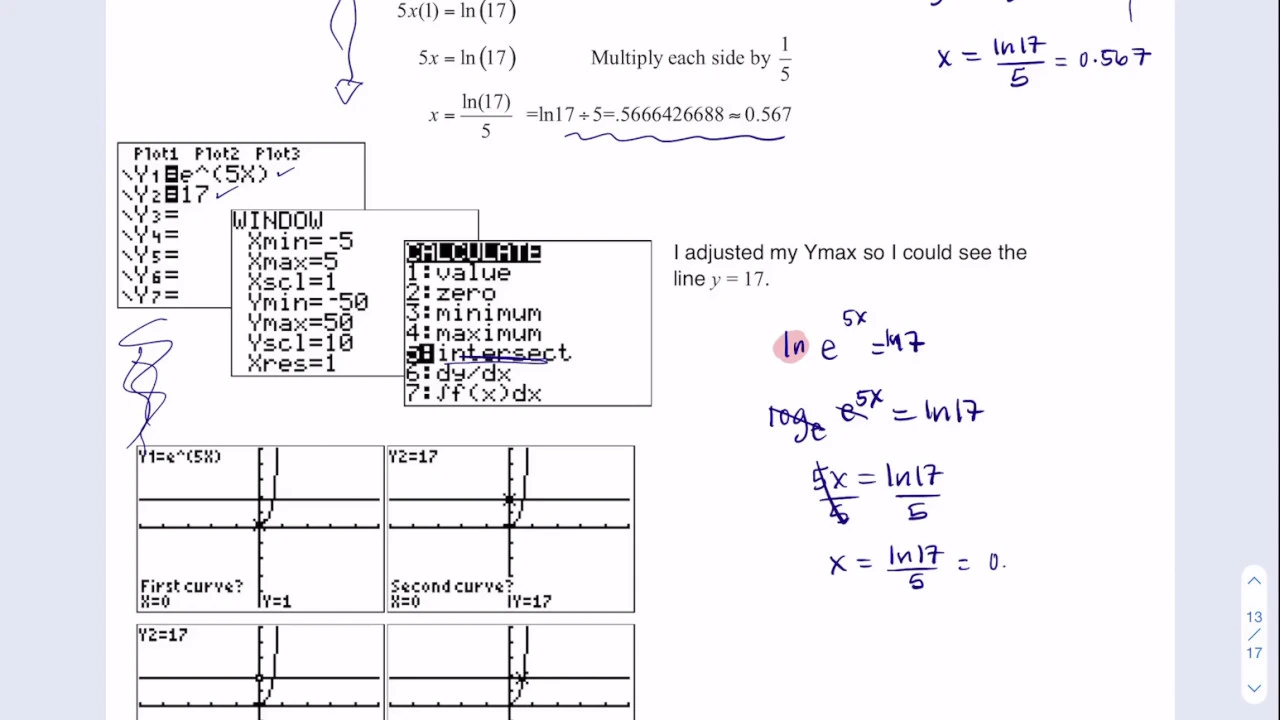 5x(1) = ln(17)
5x = ln(17) Multiply each side by 1/5
x = ln(17)/5 =ln17 ÷ 5=.5666426688 ≈ 0.567
x = ln17/5 = 0.567
Plot1 Plot2 Plot3
\Y1=e^(5X)
\Y2=17
\Y3=
\Y4=
\Y5=
\Y6=
\Y7=
WINDOW
Xmin=-5
Xmax=5
Xscl=1
Ymin=-50
Ymax=50
Yscl=10
Xres=1
CALCULATE
1:value
2:zero
3:minimum
4:maximum
5:intersect
6:dy/dx
7:∫f(x)dx
I adjusted my Ymax so I could see the
line y = 17.
ln e^5x = ln7
log_e e^5x = ln17
5x/5 = ln17/5
x = ln17/5 = 0.
Y1=e^(5X)
First curve?
X=0 Y=1
Y2=17
Second curve?
X=0 Y=17
Y2=17
13
/
17